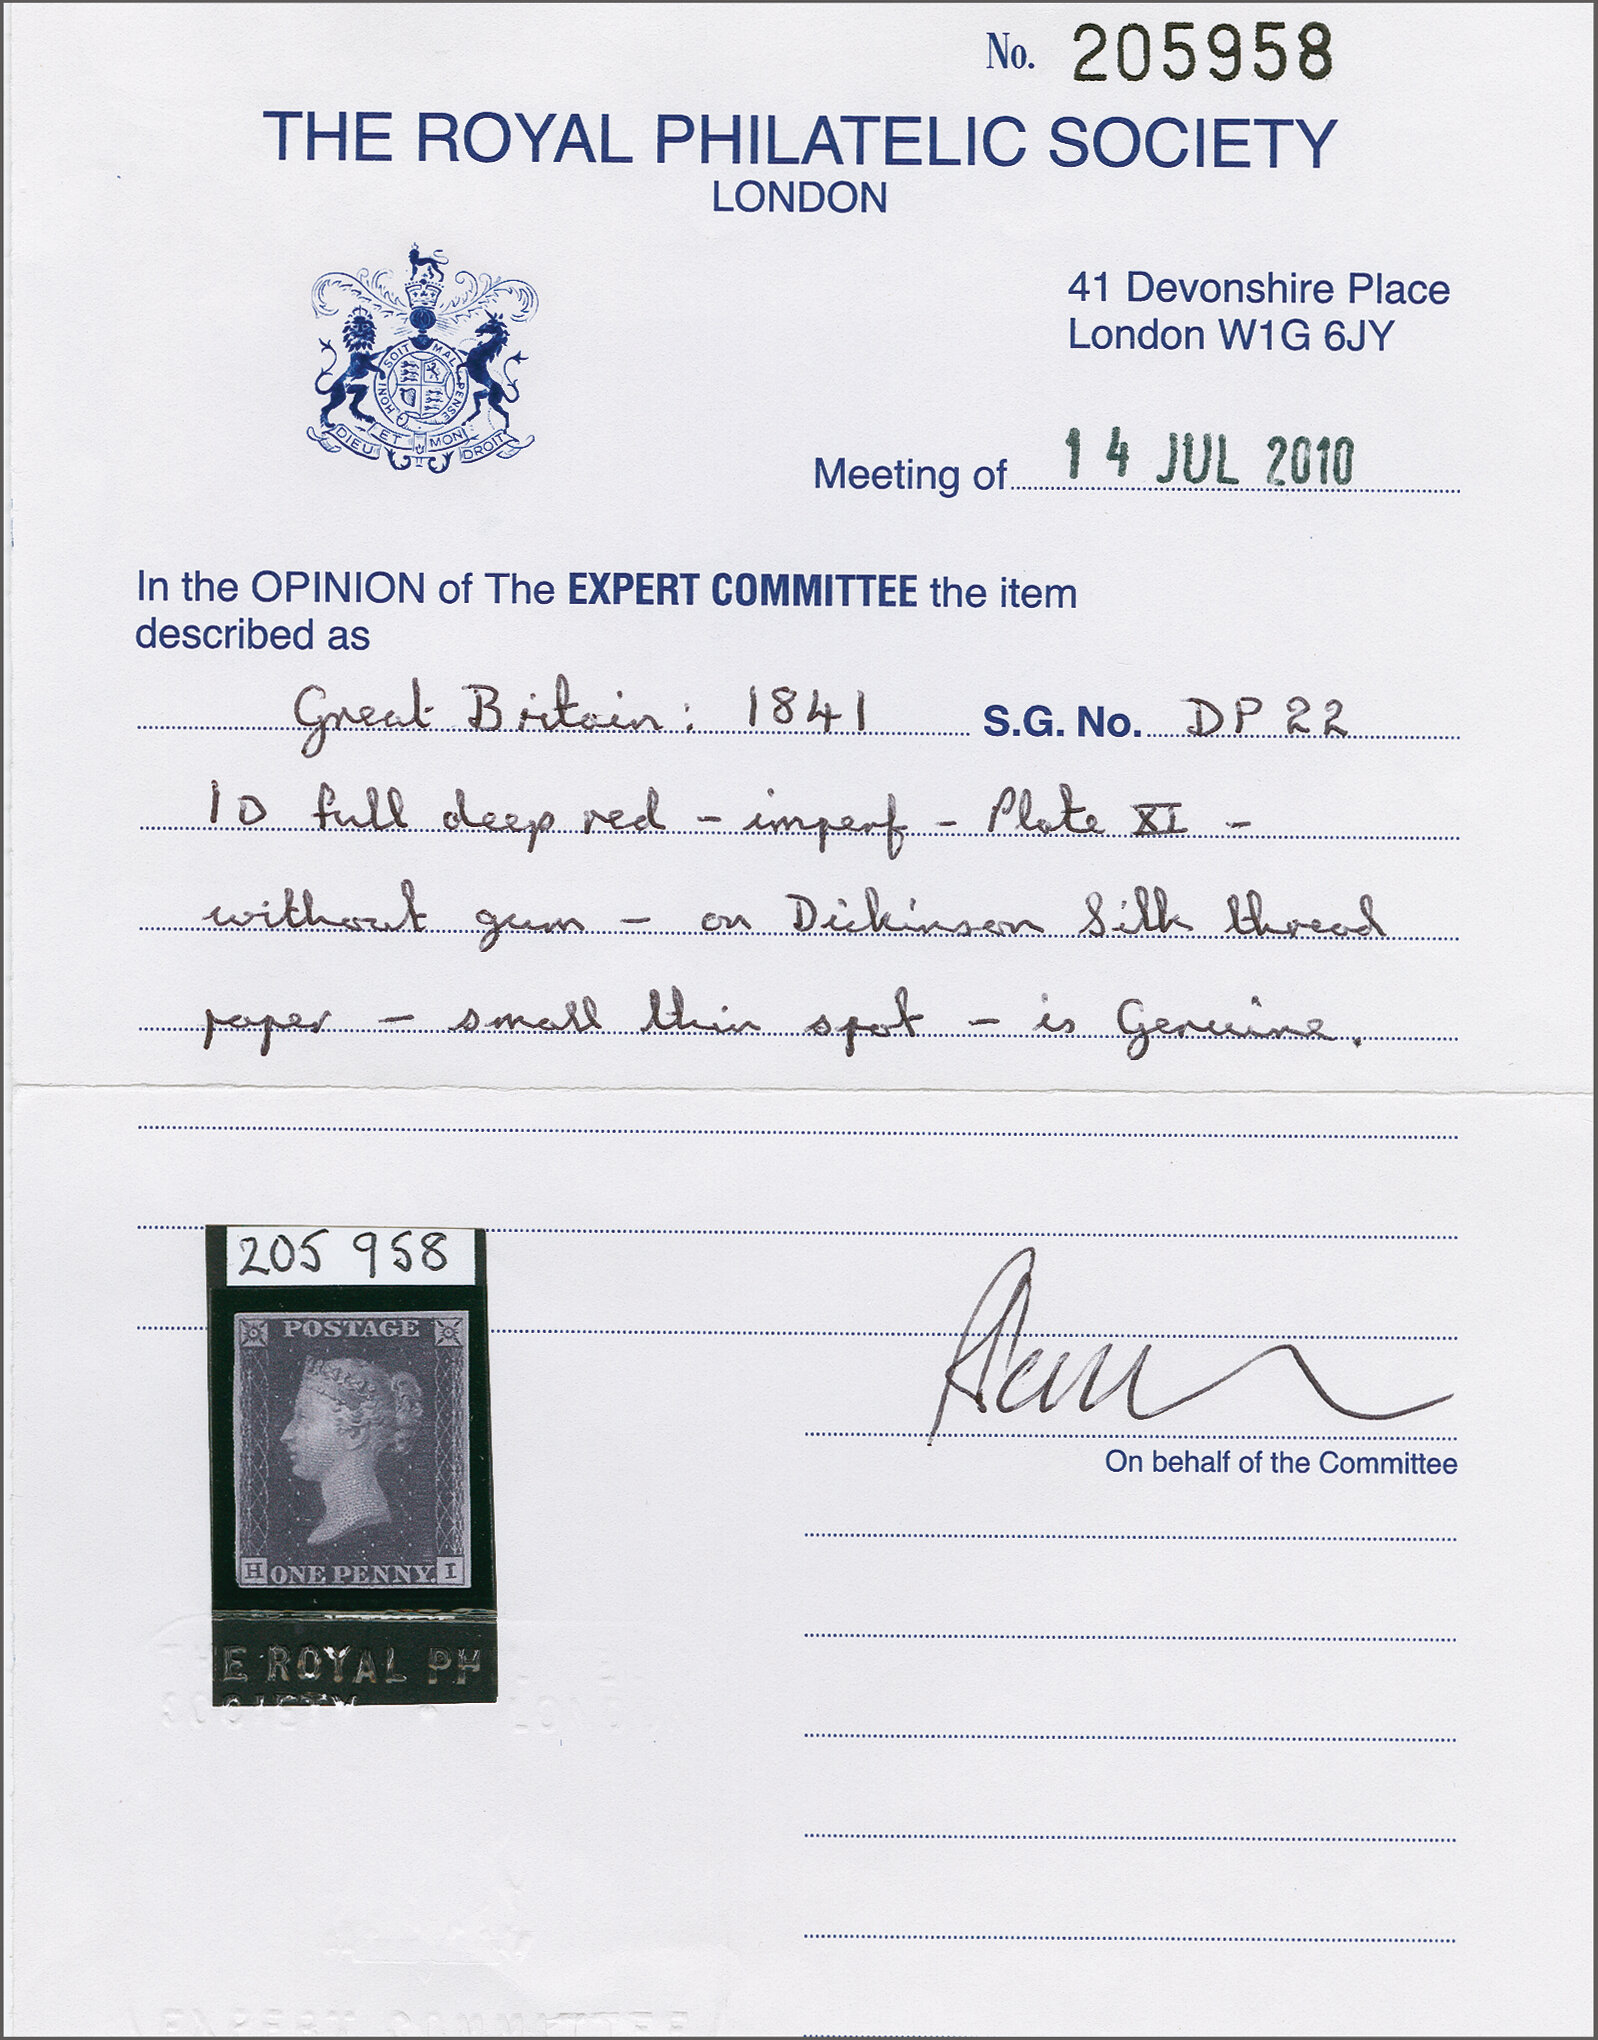 No. 205958
THE ROYAL PHILATELIC SOCIETY
LONDON
HONI SOIT MAL PENSE
DIEU ET MON DROIT
41 Devonshire Place
London W1G 6JY
Meeting of 14 JUL 2010
In the OPINION of The EXPERT COMMITTEE the item
described as
Great Britain: 1841 S.G. No. DP 22
1D full deep red - imperf - Plate XI -
without gum - on Dickinson Silk thread
paper - small thin spot - is Genuine.
205 958
POSTAGE
H ONE PENNY. I
E ROYAL PH
On behalf of the Committee